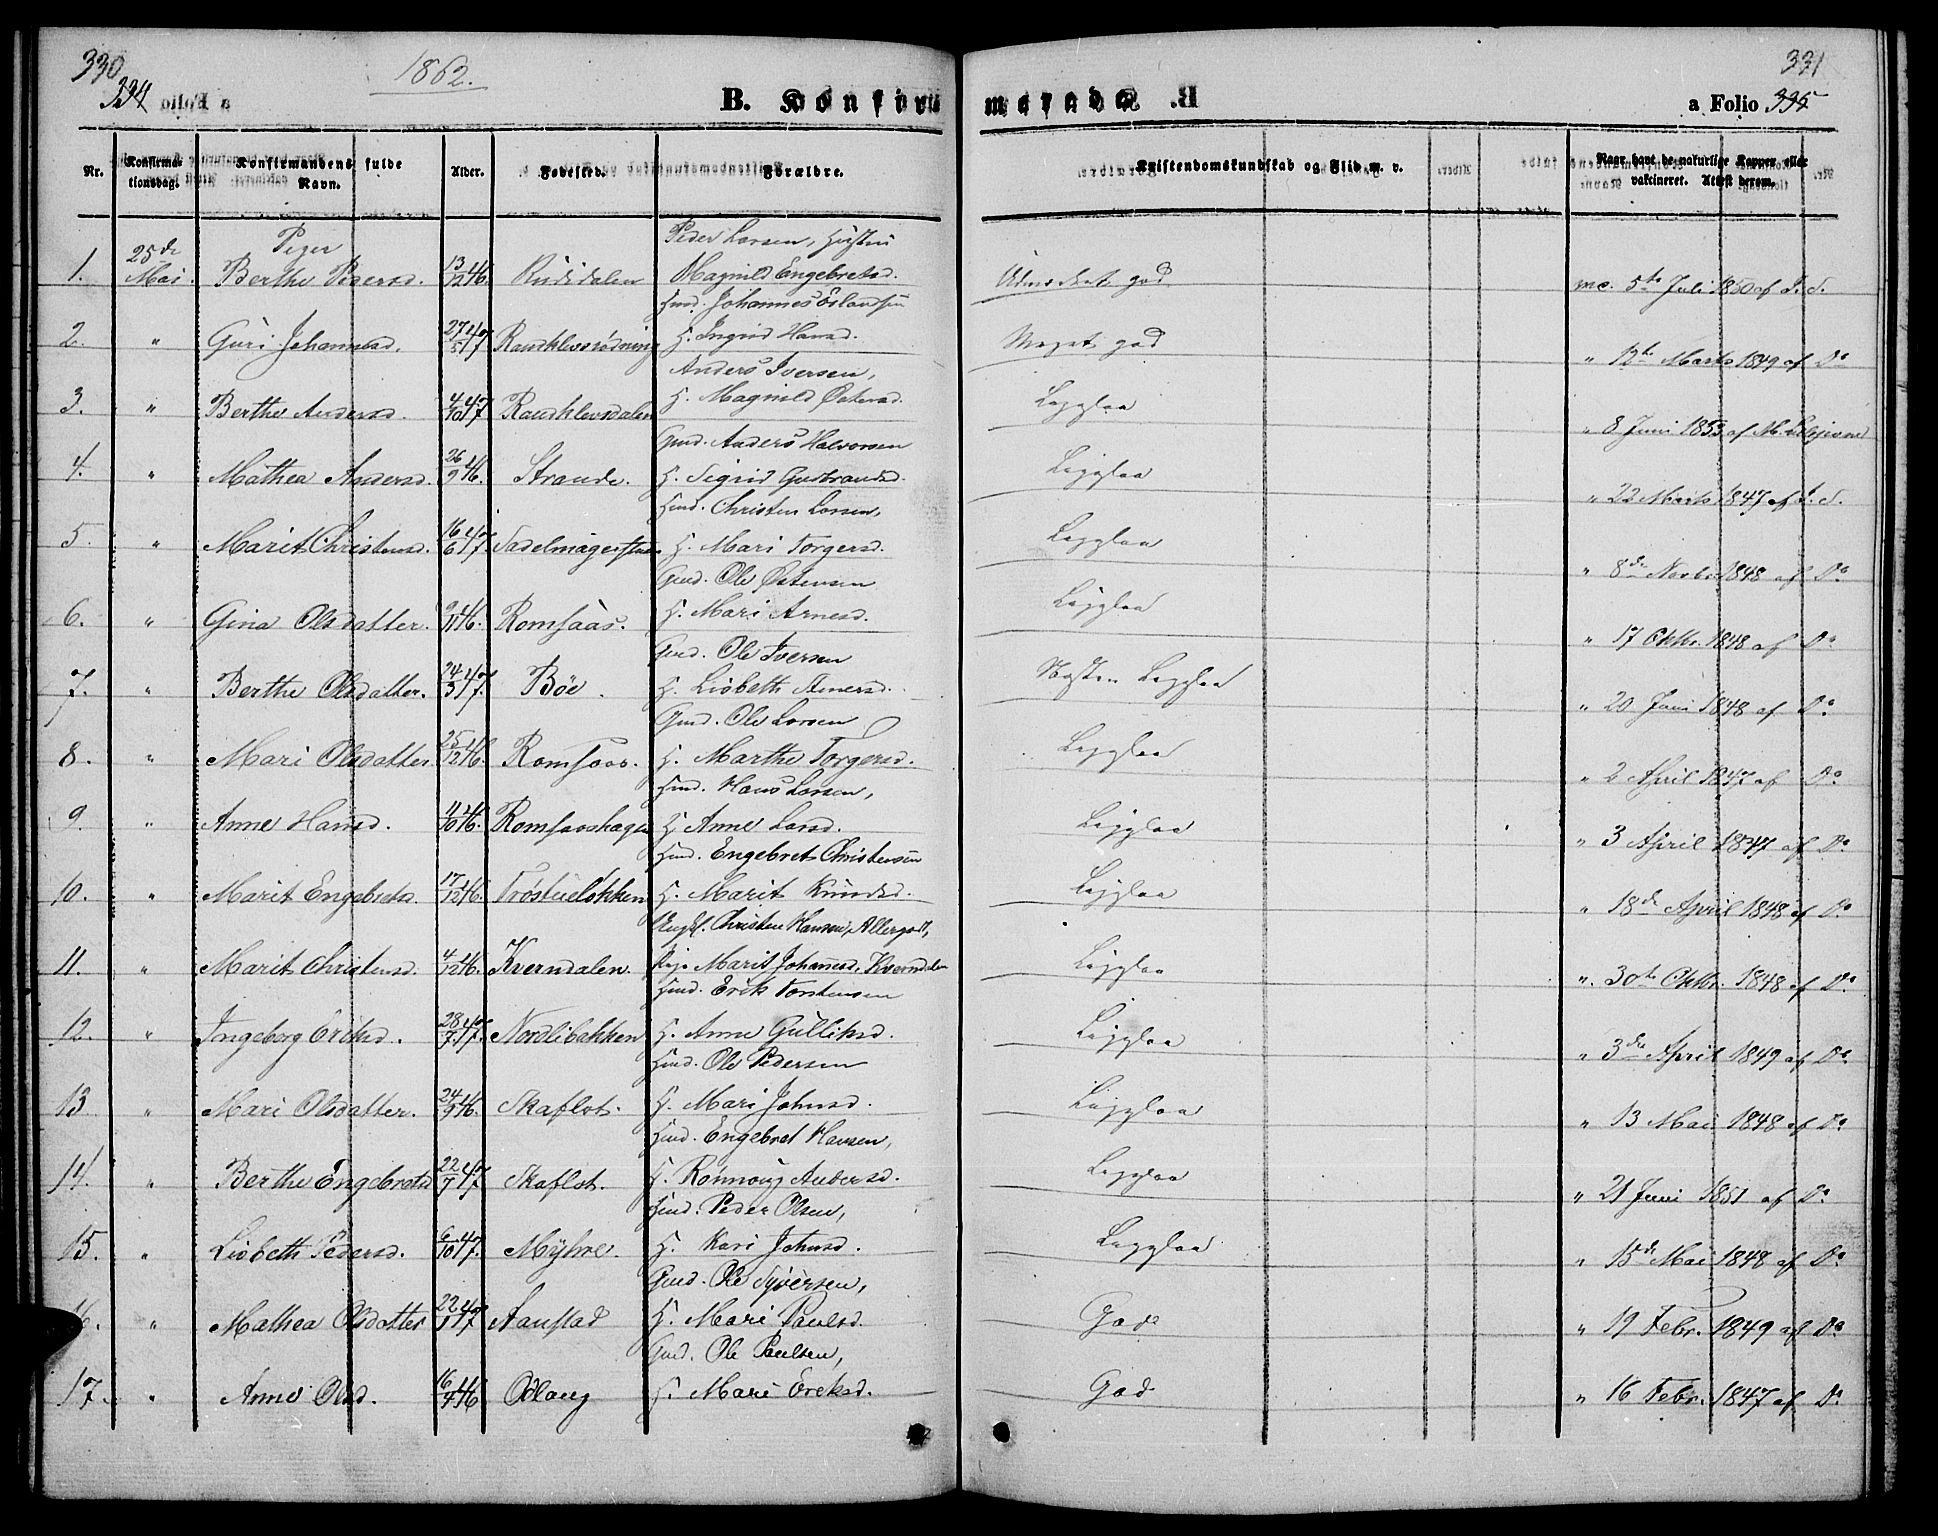 330 334 a Folio 1862. B. Konfir
merede. a Folio 335 331
Nr. Konfirmationsdag. Konfirmandens fulde Navn. Alder. Fødested. Forældre. Kristendomskundskab og Flid m. v. Naar havt de naturlige Kopper eller vakcineret. Attest derom.
Piger Peder Larsen, Hustru
1. 25de Mai. Berthe Pedersd. 13/12 46. Rudidalen Magnild Engebretsd. Udmærket god mc. 5te Juli 1850 af J. S.
Huusmd. Johannes Erlandsen
2. " Guri Johannesd. 27/5 47 Randklevsrødning H. Ingrid Hansd. Meget god " 12te Marts 1849 af Do
Anders Iversen,
3. " Berthe Andersd. 4/10 47 Randklevsdalen H. Magnild Østensd. Ligesaa " 8 Juni 1853 af M.
Gmd. Anders Halvorsen
4. " Mathea Andersd. 26/9 46. Strande. H. Sigrid Gudbrandsd. Ligesaa " 22 Marts 1847 af J. S.
Hmd. Christen Larsen,
5. " Marit Christensd. 16/6 47. Sadelmagerstuen H. Mari Torgersd. Ligesaa " 8de Novbr 1848 af Do
Gmd. Ole Østensen
6. " Gina Olsdatter. 9/11 46. Romsaas. H. Mari Arnesd. Ligesaa " 17 Oktbr. 1848 af Do
Gmd. Ole Iversen
7. " Berthe Olsdatter. 24/3 47. Bøe. H. Lisbeth Amersd. Næsten Ligesaa " 20 Juni 1848 af Do
Gmd. Ole Larsen
8. " Mari Olsdatter 25/12 46. Romsaas. H. Marthe Torgersd. Ligesaa " 2 April 1847 af Do
Hmd. Hans Larsen,
9. " Anne Hansd. 4/10 46. Romsaashagen H. Anne Larsd. Ligesaa " 3 April 1847 af Do
Hmd. Engebret Christensen
10. " Marit Engebretsd. 17/12 46. Trøstueløkken H. Marit Knudsd. Ligesaa " 18de April 1848 af Do
Ungk. Christen Hansen, Allergodt,
11. " Marit Christensd. 4/12 46. Kverndalen Pige Marit Johannesd. Kverndalen Ligesaa " 30te Oktbr. 1848 af Do
Hmd. Erik Torstensen
12. " Ingeborg Eriksd. 28/7 47. Nordlibakken H. Anne Gulliksd. Ligesaa " 3die April 1849 af Do
Hmd. Ole Pedersen
13 " Mari Olsdatter. 24/9 46. Skaflot. H. Mari Johnsd. Ligesaa " 13 Mai 1848 af Do
Hmd. Engebret Hansen,
14. " Berthe Engebretsd 22/7 47 Skaflot. H. Rønnoug Andersd. Ligesaa " 21 Juni 1851 af Do
Hmd. Peder Olsen,
15. " Lisbeth Pedersd. 6/10 47. Myhre. H. Kari Johnsd. Ligesaa " 15de Mai 1848 af Do
Gmd. Ole Syversen,
16. " Mathea Olsdatter 22/1 47 Aanstad H. Mari Paulsd. Gode " 19 Febr. 1849 af Do
Gmd. Ole Paulsen,
17. " Anne Olsd. 16/4 46 Odlaug H. Mari Ereksd. God " 16 Febr. 1847 af Do